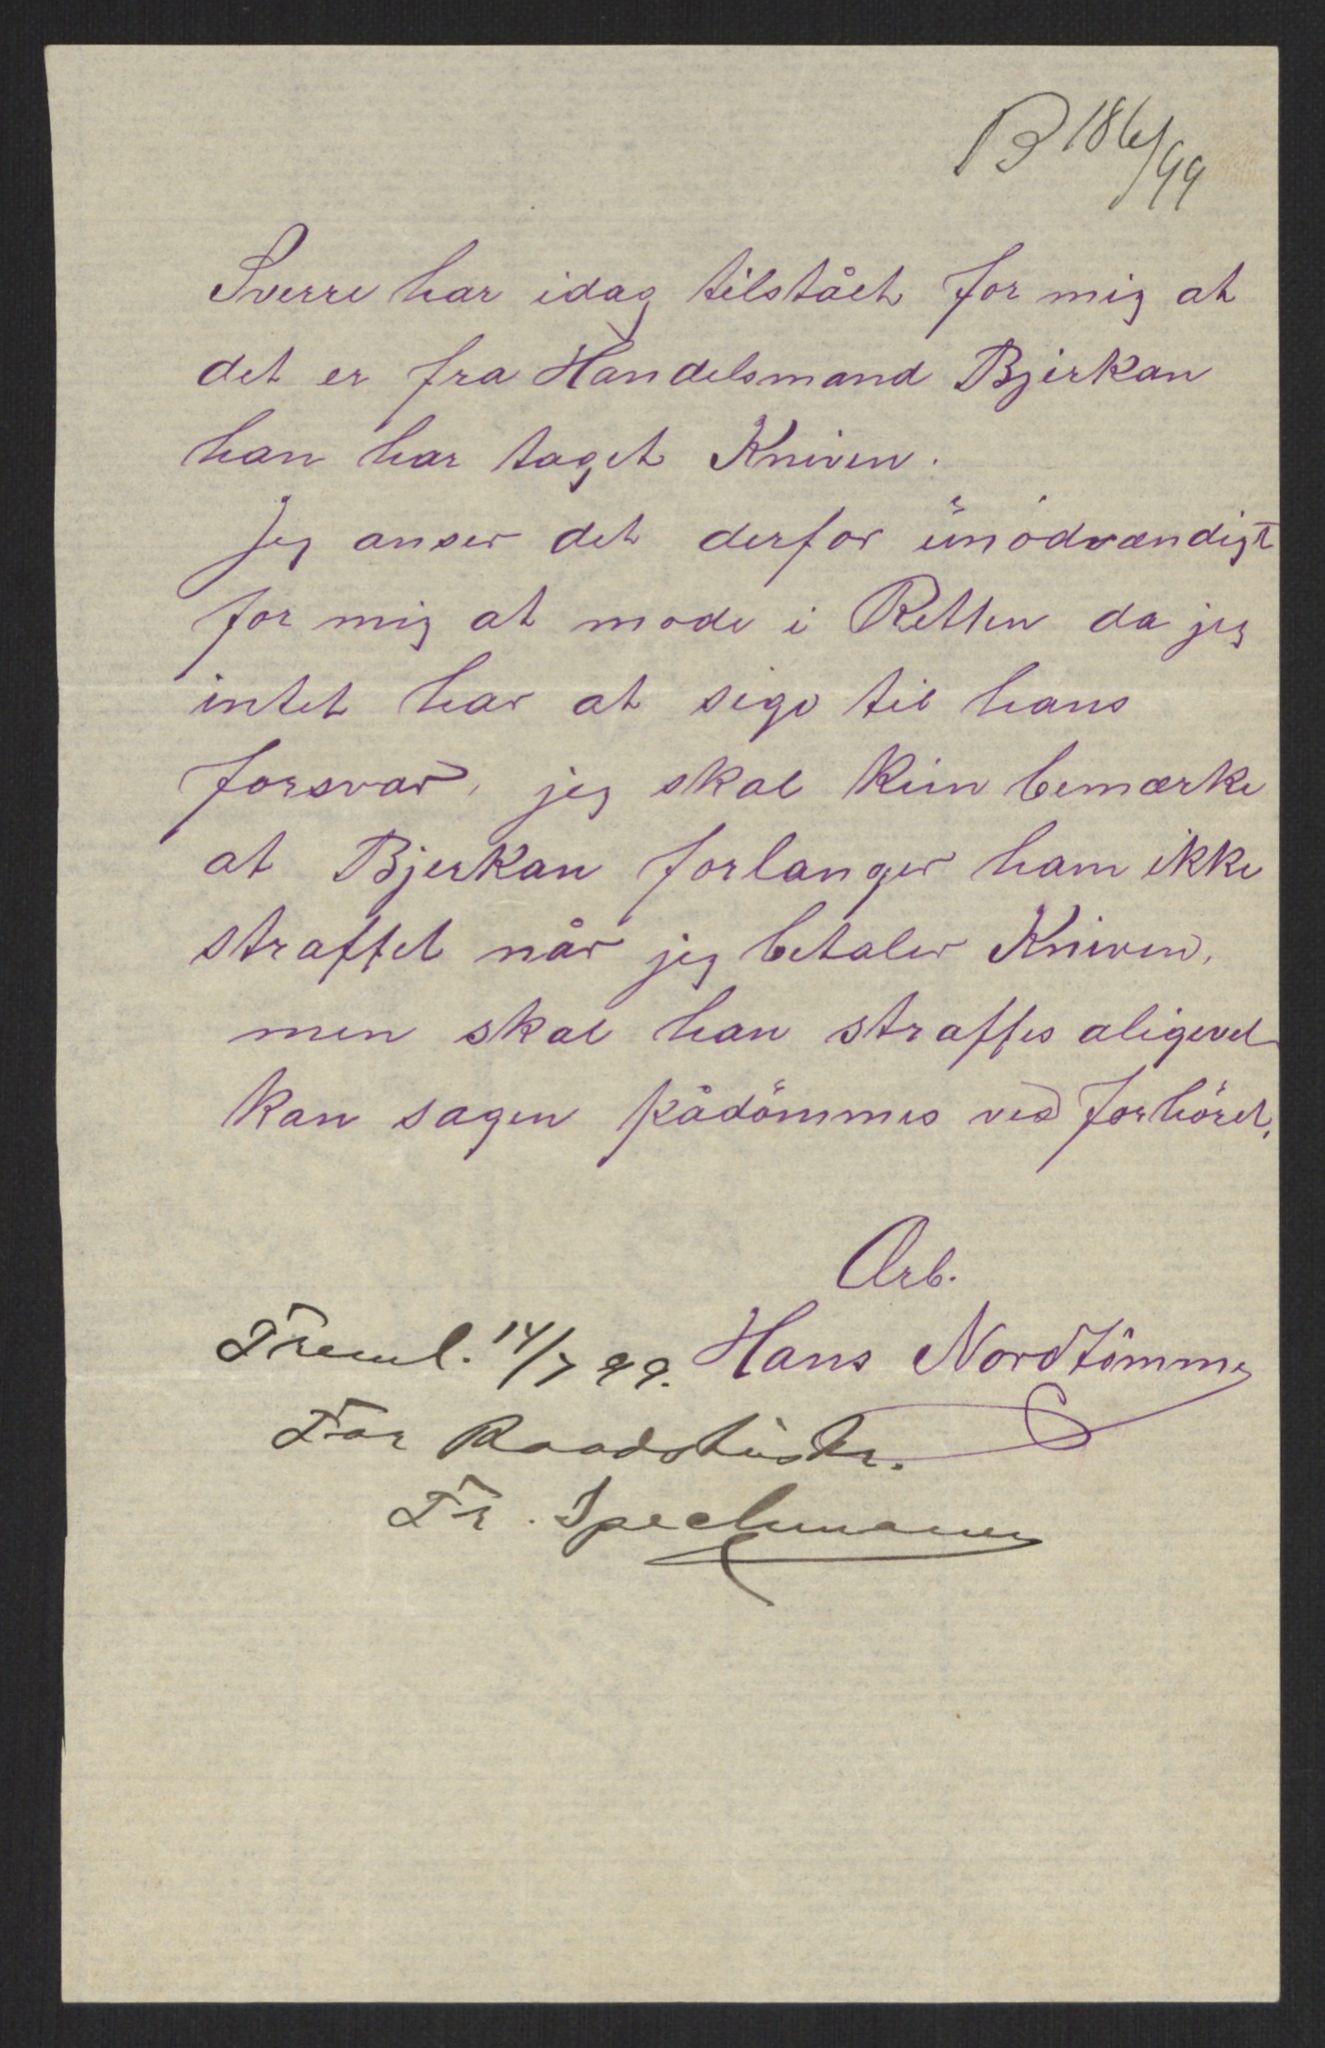 B 186/99
Sverre har idag tilstået for mig at
det er fra Handelsmand Bjerkan
han har taget Kniven.
Jeg anser det derfor unödvændigt
for mig at möde i Retten da jeg
intet har at sige til hans
forsvar, jeg skal kun bemærke
at Bjerkan forlanger ham ikke
straffet når jeg betaler Kniven,
men skal han straffes aligevel
kan sagen pådömmes ved forhöret.
Arb.
Hans Nordtömme
Freml. 14/7 99.
For Raadstustr.
Fr. Spechmann